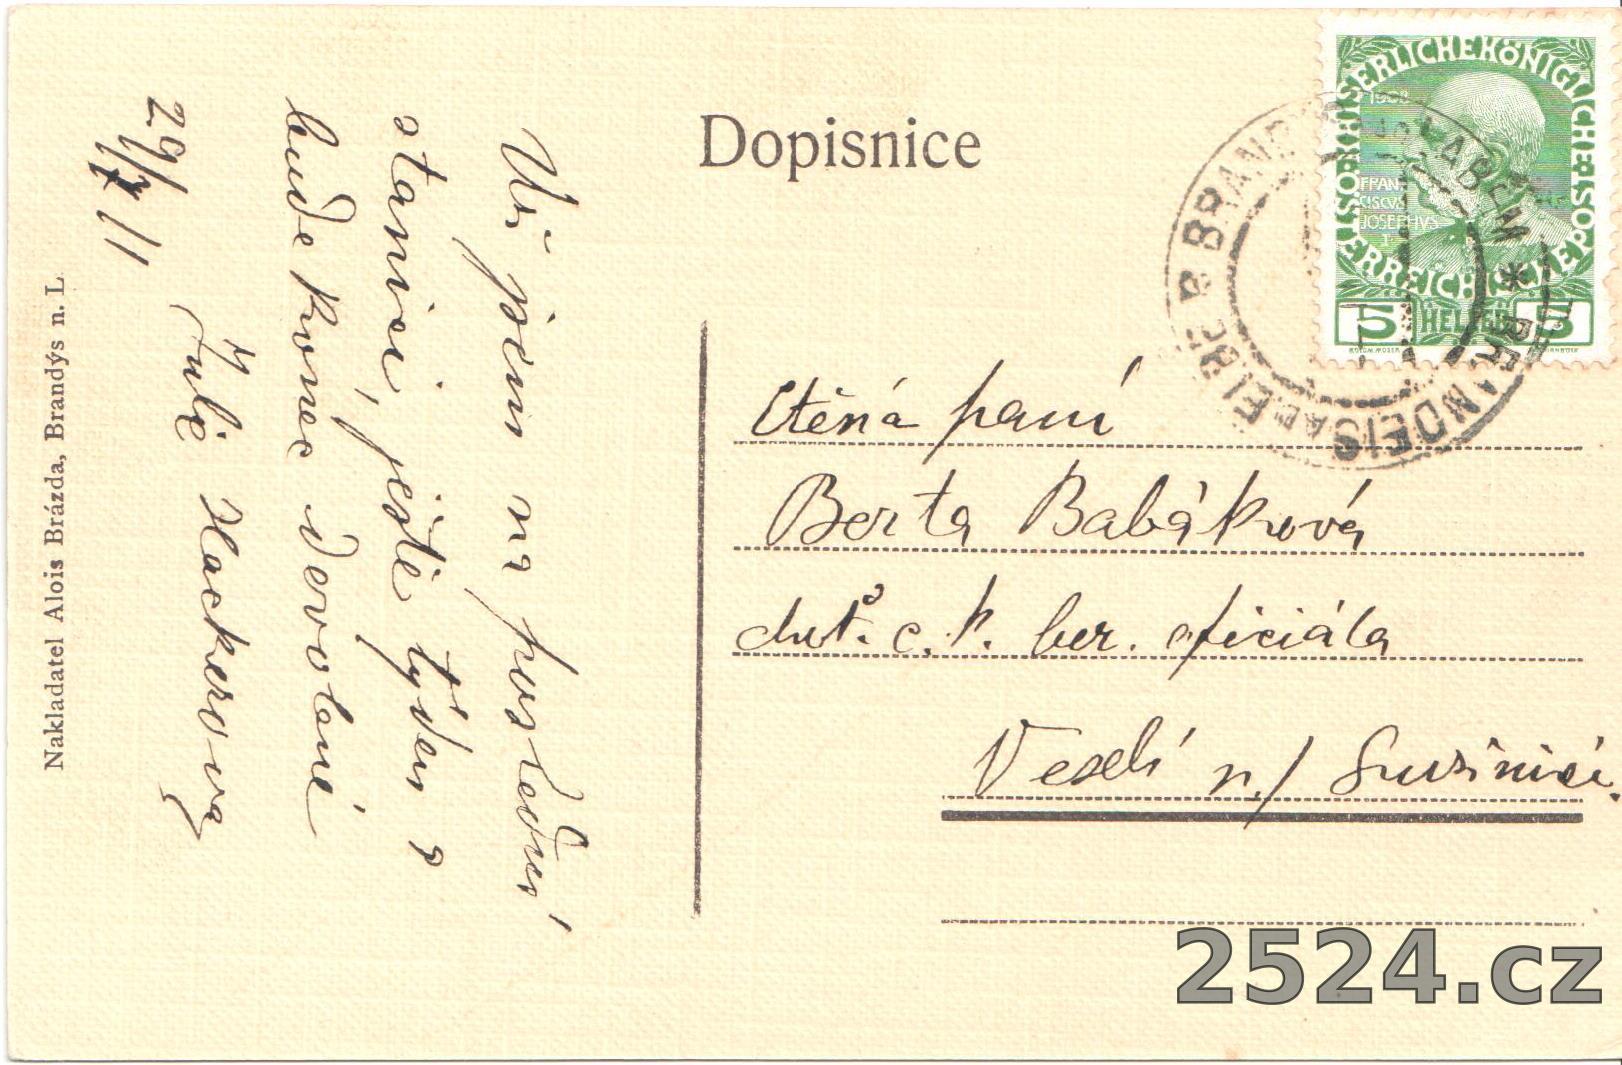 Dopisnice
Už jsem na poslední
stanici, ještě týden a
bude konec dovolené
Julie Hackerová
29/7 11
Ctěná paní
Berta Babáková
choť c. k. ber. oficiála
Veselí n./ Lužinicí.
Nakladatel Alois Brázda, Brandýs n. L.
KAISERLICHE KÖNIGLICHE ÖSTERREICHISCHE POST
1908
FRAN
CISCVS
JOSEPHVS
I
5 HELLER 5
BRANDÝS NAD LABEM * BRANDEIS A.E. ELBE
2524.cz